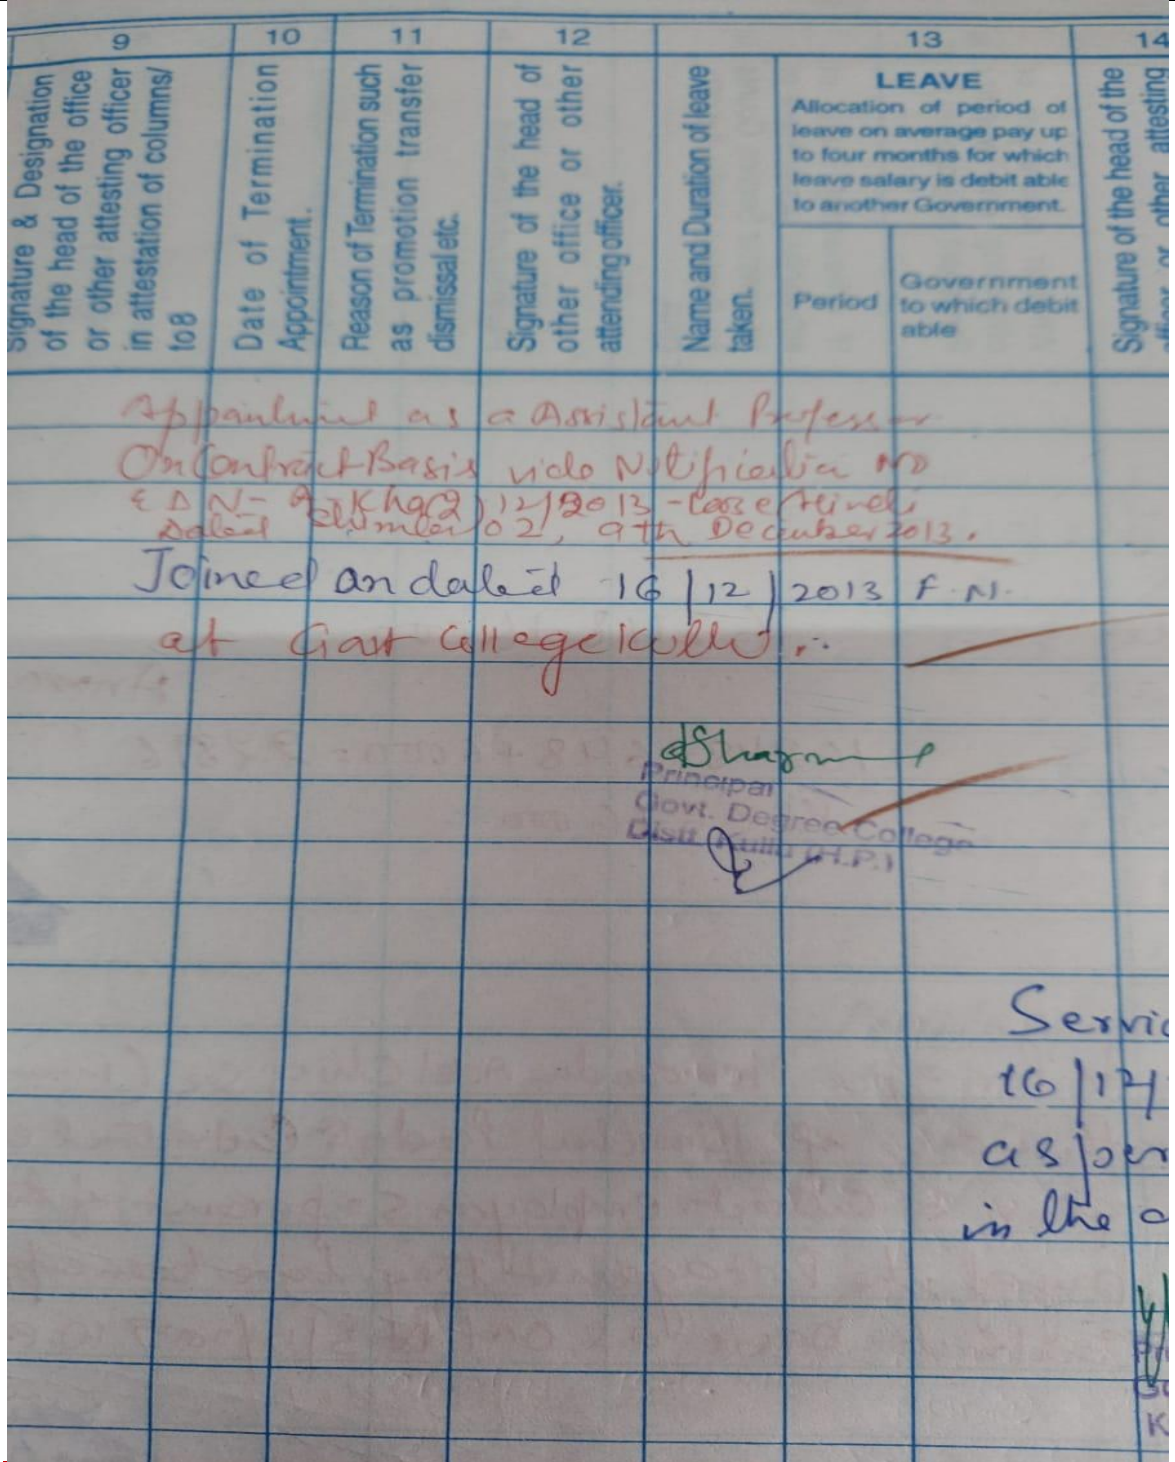 9 10 11 12 13 14
Signature & Designation
of the head of the office
or other attesting officer
in attestation of columns/
to 8
Date of Termination
Appointment.
Reason of Termination such
as promotion transfer
dismissal etc.
Signature of the head of
other office or other
attending officer.
Name and Duration of leave
taken.
LEAVE
Allocation of period of
leave on average pay up
to four months for which
leave salary is debit able
to another Government.
Period
Government
to which debit
able
Signature of the head of the
officer or other attesting
Appointment as a Assistant Professor
On Contract Basis vide Notification NO
EDN-A-Kha(2)12/2013-Loose Hindi
Dated Shimla 02, 9th December 2013.
Joined on dated 16/12/2013 F.N.
at Govt College Kullu
Sharma
Principal
Govt. Degree College
Distt. Kullu (H.P.)
Servic
16/12/
as per
in the
K